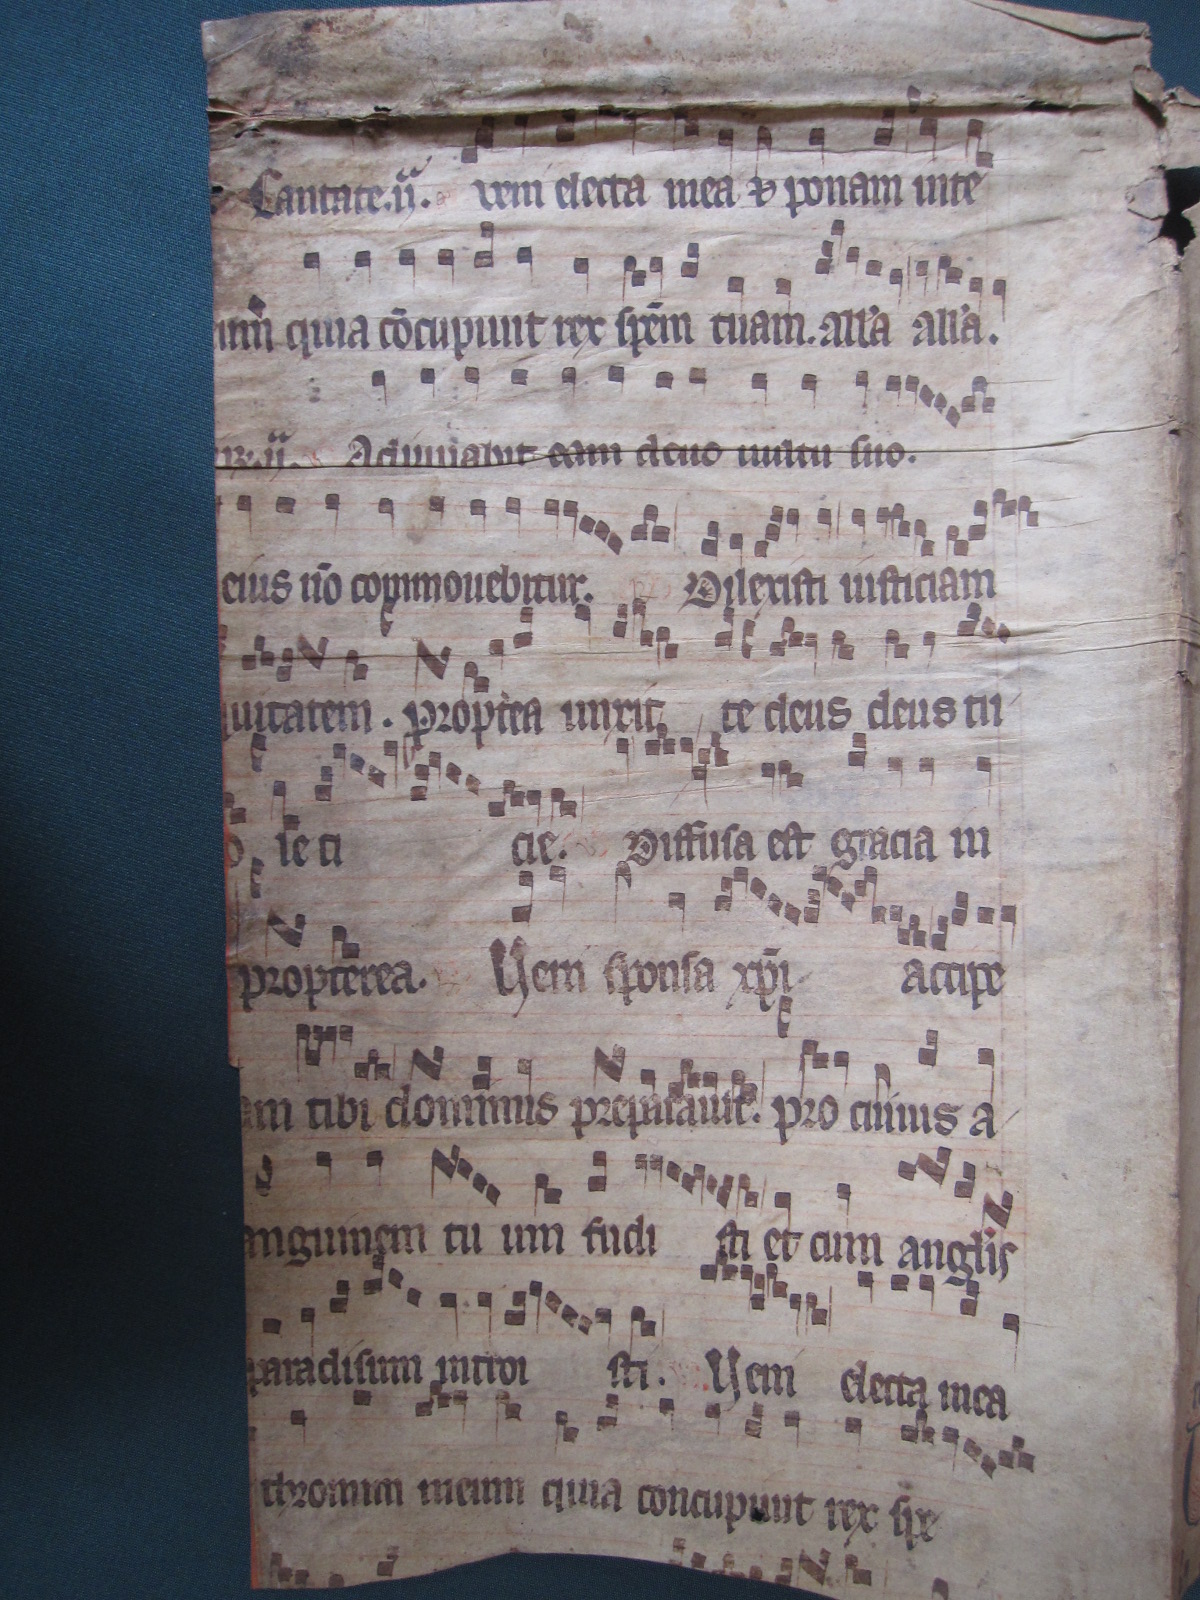 Cantate.ii. veni electa mea et ponam inte
um quia cōcupiuit rex spēm tuam. all'a all'a.
Adiuuabit eam deus uultu suo.
eius nō commouebitur. Dilexisti iusticiam
quitatem. Propterea unxit te deus deus tu
le ti cie. Diffusa est gracia in
propterea. Veni sponsa xpi accipe
am tibi dominus preparauit. pro cuius a
anguinem tu um fudi sti et cum anglis
paradisum introi sti. Veni electa mea
thronum meum quia concupiuit rex spe